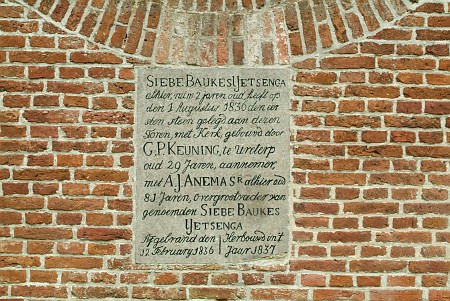 SIEBE BAUKES IJETSENGA
alhier, ruim 2 jaren oud heeft op
den 1 Augustus 1836 den eer
sten steen gelegd aan dezen
Toren, met Kerk, gebouwd door
G.P. KEUNING, te ureterp
oud 29 Jaren, aannemer,
met A.J. ANEMA Sr alhier oud
81 Jaren, overgrootvader van
genoemden SIEBE BAUKES
IJETSENGA
Afgebrand den Herbouwd in't
12 February 1836 Jaar 1837